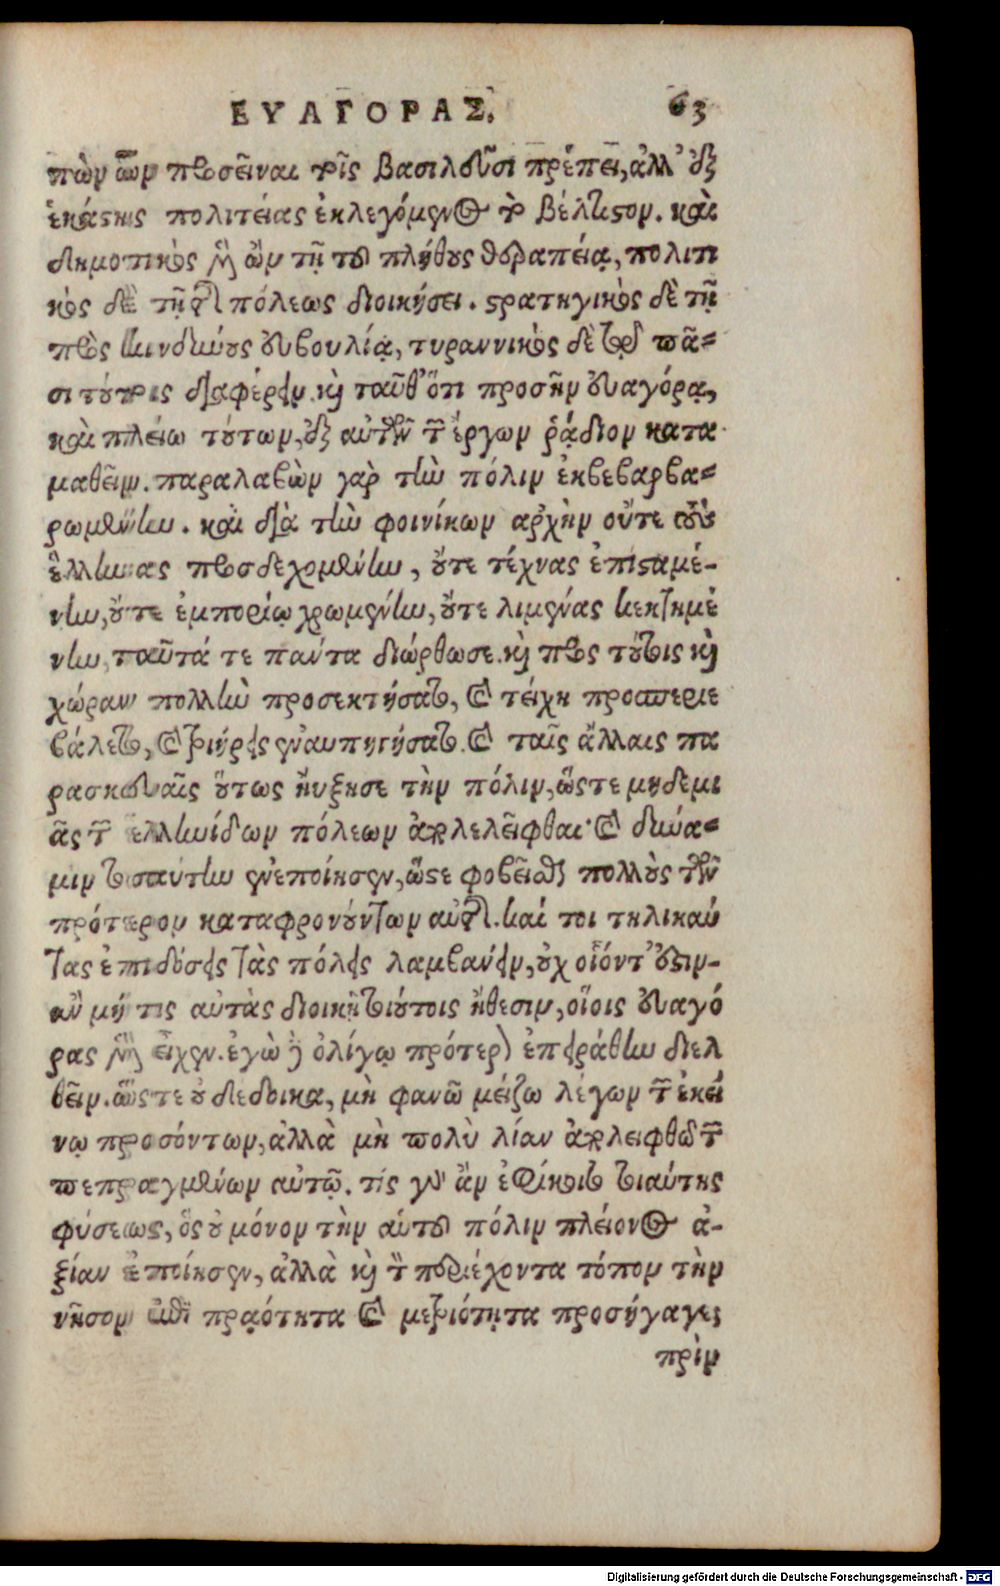 ΕΥΑΓΟΡΑΣ. 63
πὼν ὧν προσεῖναι τοῖς βασιλεῦσι πρέπει, ἀλλ' ἐξ
ἑκάστης πολιτείας ἐκλεγόμενος τὸ βέλτιστον. καὶ
δημοτικὸς μὲν ὢν τῇ τοῦ πλήθους θεραπείᾳ, πολιτι
κὸς δὲ τῇ τῆς πόλεως διοικήσει. στρατηγικὸς δὲ τῇ
πρὸς κινδύνους εὐβουλίᾳ, τυραννικὸς δὲ τῷ πᾶ-
σι τούτοις διαφέρειν. καὶ ταῦθ' ὅτι προσῆν εὐαγόρᾳ,
καὶ πλείω τούτων, ἐξ αὐτῶν τῶν ἔργων ῥᾴδιον κατα
μαθεῖν. παραλαβὼν γὰρ τὴν πόλιν ἐκβεβαρβα-
ρωμένην. καὶ διὰ τὴν φοινίκων ἀρχὴν οὔτε τοὺς
ἕλληνας προσδεχομένην, οὔτε τέχνας ἐπισταμέ-
νην, οὔτε ἐμπορίῳ χρωμένην, οὔτε λιμένας κεκτημέ
νην, ταῦτά τε πάντα διώρθωσε. καὶ πρὸς τούτοις καὶ
χώραν πολλὴν προσεκτήσατο, καὶ τείχη προσπεριε
βάλετο, καὶ τριήρεις ἐναυπηγήσατο. καὶ ταῖς ἄλλαις πα
ρασκευαῖς οὕτως ηὔξησε τὴν πόλιν, ὥστε μηδεμι
ᾶς τῶν ἑλληνίδων πόλεων ἀπολελεῖφθαι· καὶ δύνα-
μιν τοσαύτην ἐνεποίησεν, ὥστε φοβεῖσθαι πολλοὺς τῶν
πρότερον καταφρονούντων αὐτῆς. καί τοι τηλικαύ
τας ἐπιδόσεις τὰς πόλεις λαμβάνειν, οὐχ οἷόντ' ἐστιν-
ἂν μή τις αὐτὰς διοικῇ τοιούτοις ἤθεσιν, οἵοις εὐαγό
ρας μὲν εἶχεν. ἐγὼ δ' ὀλίγῳ πρότερον ἐπειράθην διελ
θεῖν. ὥστε οὐ δέδοικα, μὴ φανῶ μείζω λέγων τῶν ἐκεί
νῳ προσόντων, ἀλλὰ μὴ πολὺ λίαν ἀπολειφθῶ τῶν
πεπραγμένων αὐτῷ. τίς γὰρ ἂν ἐφίκοιτο τοιαύτης
φύσεως, ὃς οὐ μόνον τὴν αὑτοῦ πόλιν πλείονος ἀ-
ξίαν ἐποίησεν, ἀλλὰ καὶ τὸν περιέχοντα τόπον τὴν
νῆσον ἐπὶ πρᾳότητα καὶ μετριότητα προσήγαγε;
πρὶν
Digitalisierung gefördert durch die Deutsche Forschungsgemeinschaft - DFG